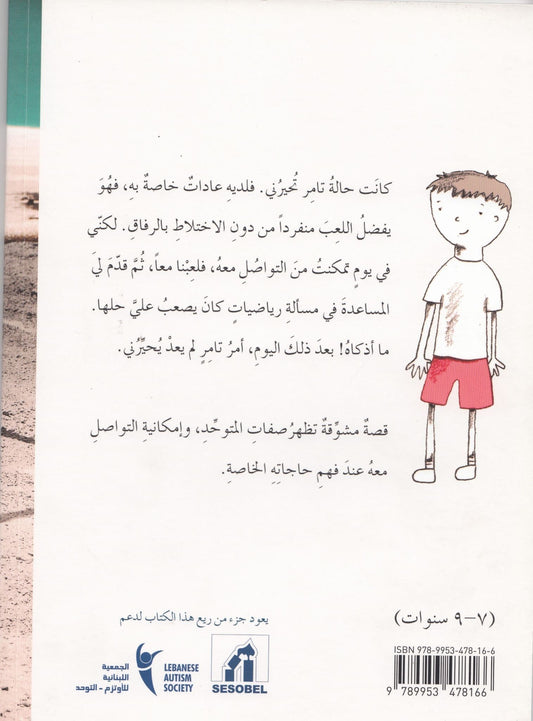 كانَت حالةُ تامِر تُحيرُني. فلديهِ عاداتٌ خاصةٌ بهِ، فهُوَ
يفضلُ اللعِبَ منفرداً من دونِ الاختلاطِ بالرفاقِ. لكنّني
في يومٍ تمكنتُ منَ التواصُلِ معهُ، فلعِبْنا معاً، ثُمَّ قدّمَ ليَ
المساعدةَ في مسألةِ رياضياتٍ كانَ يصعبُ عليَّ حلها.
ما أذكاهُ! بعدَ ذلكَ اليومِ، أمرُ تامِرٍ لم يعدْ يُحيِّرُني.
قصةٌ مشوِّقةٌ تظهرُ صفاتِ المتوحِّدِ، وإمكانيةِ التواصلِ
معهُ عندَ فهمِ حاجاتِهِ الخاصةِ.
(٧–٩ سنوات)
يعود جزء من ريع هذا الكتاب لدعم
ISBN 978-9953-478-16-6
9 789953 478166
SESOBEL
LEBANESE
AUTISM
SOCIETY
الجمعية
اللبنانية
للأوتزم - التوحد